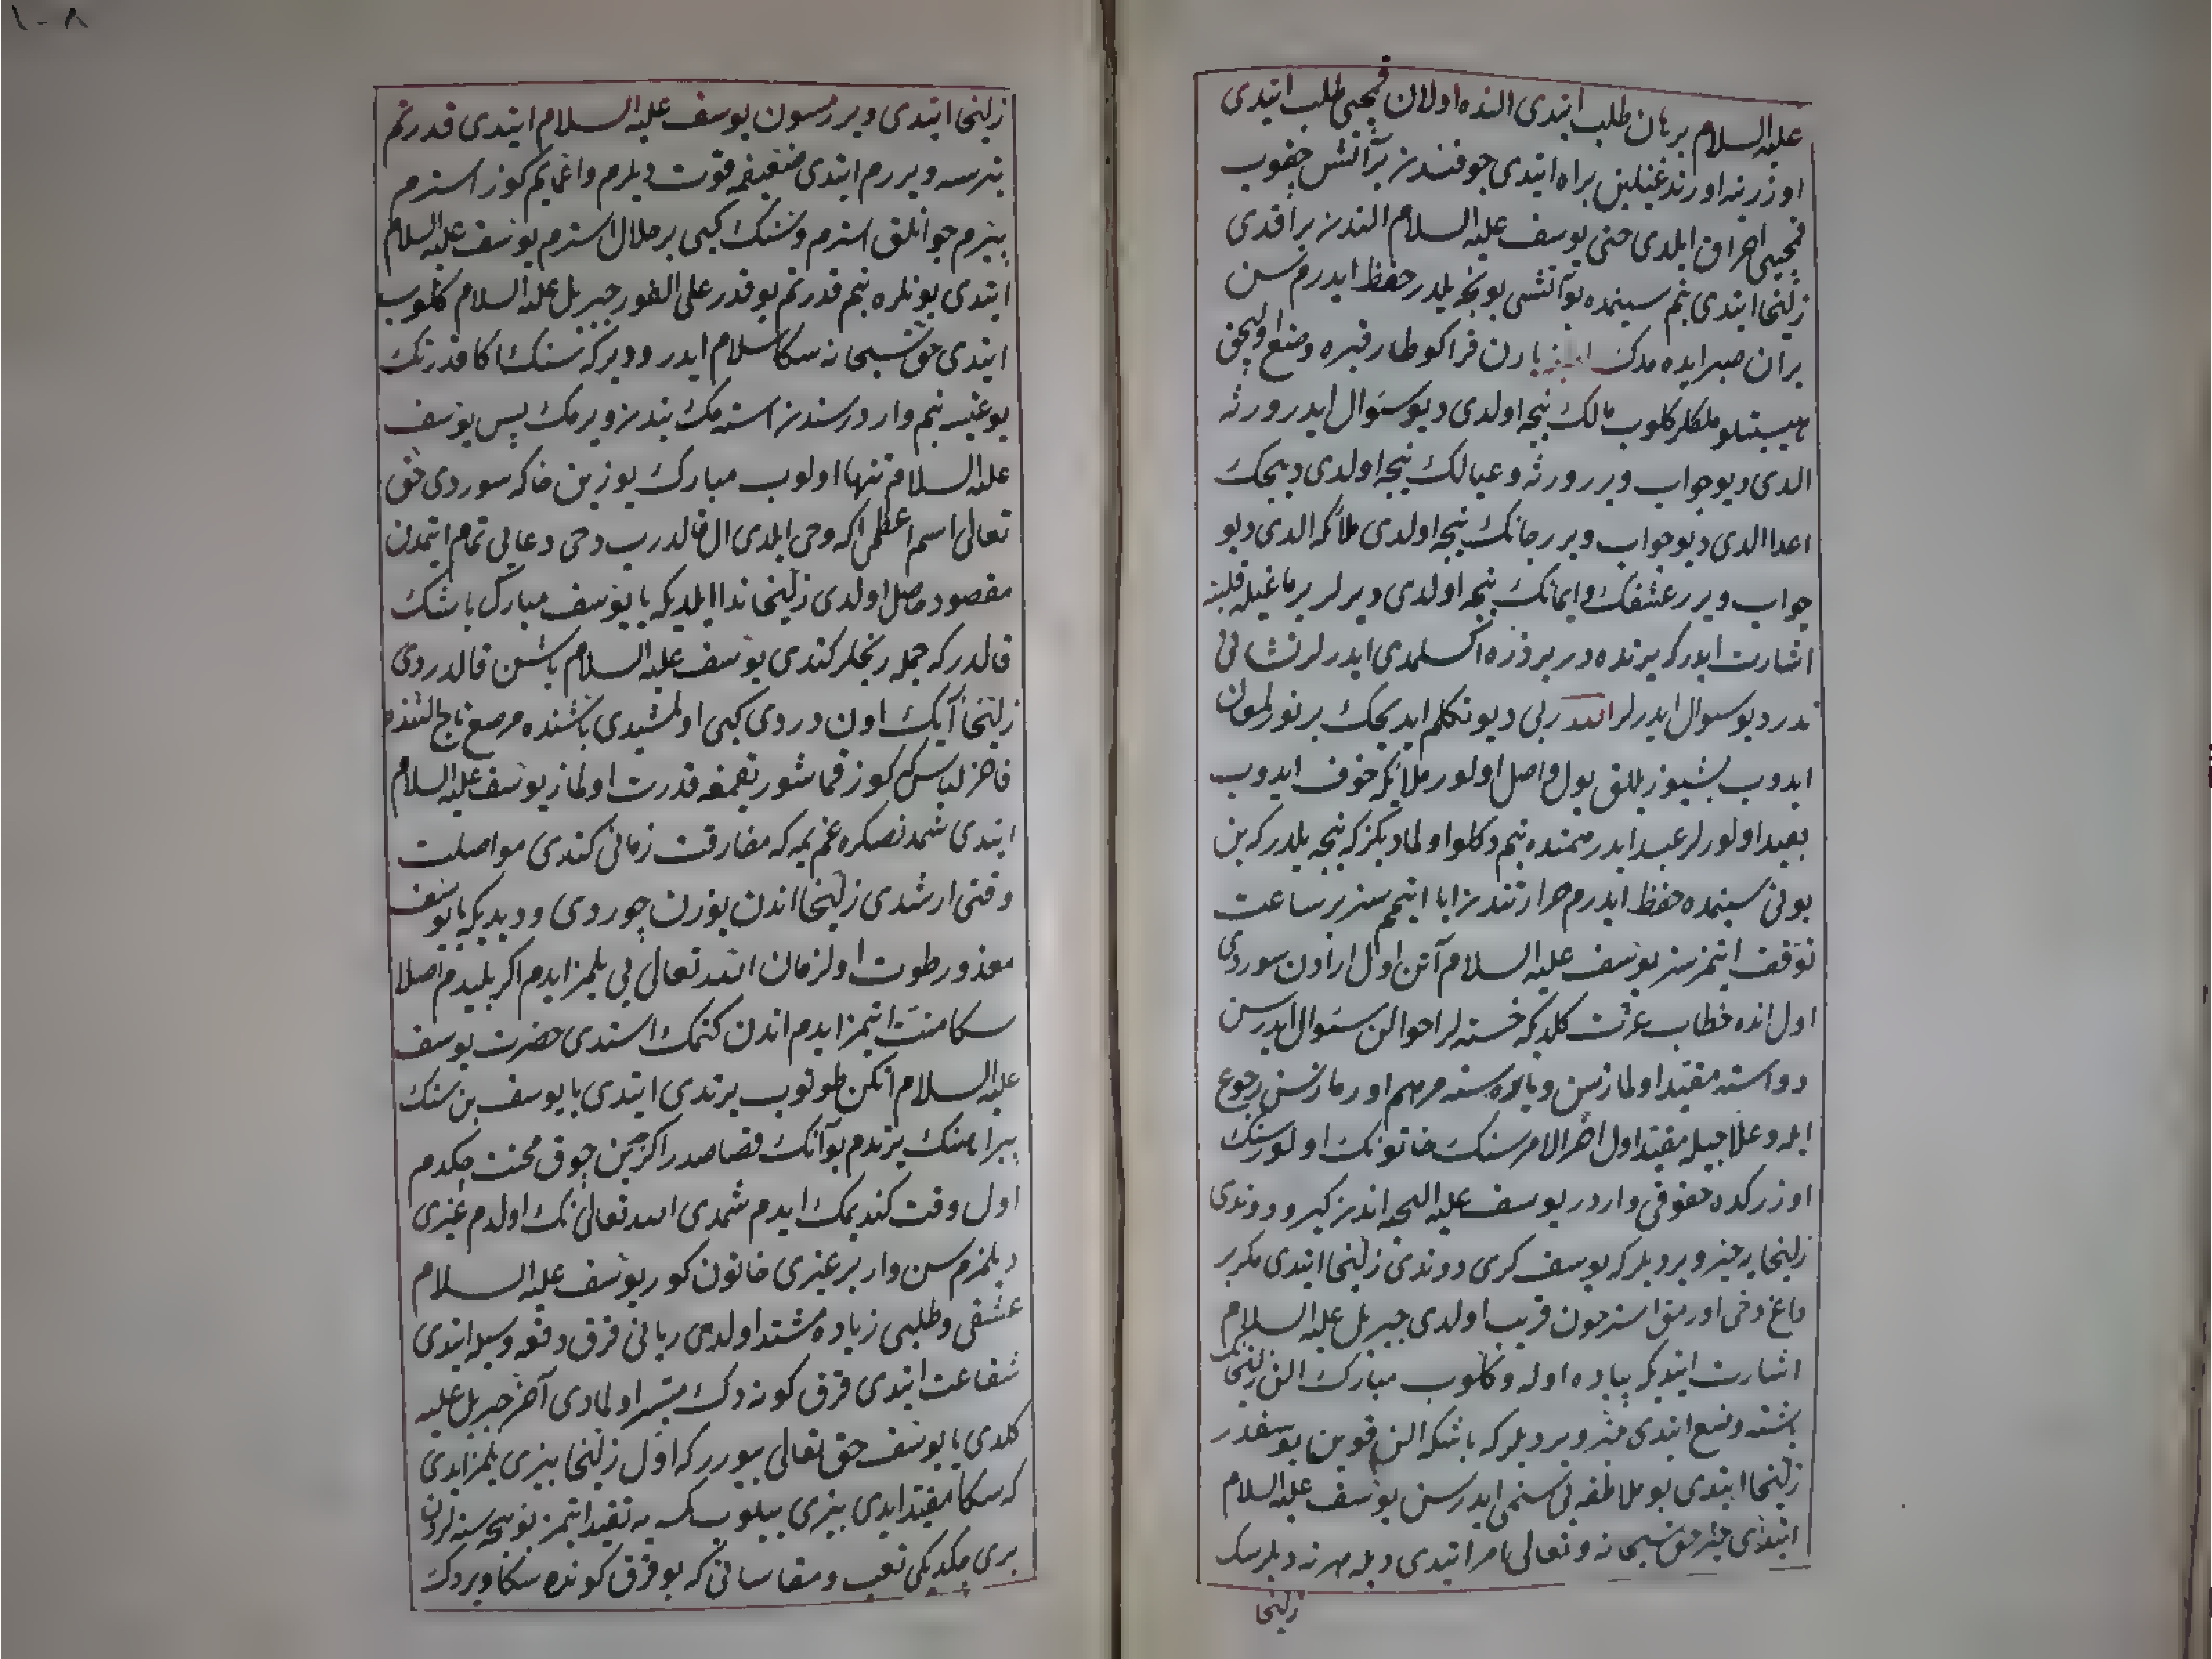 عليه السلام برهان طلب ايتدى النده اولان قمچيى طلب ايتدى
اوزرينه اورند غنيلين براه ايتدى جوفندن بر آتش چقوب
قمچيى احراق ايلدى حتى يوسف عليه السلام الندن براقدى
زليخا ايتدى بنم سينمده بو آتشى بونجه يلدر حفظ ايدرم سن
بر آن صبر ايده مدك يارن قراكو طار قبره وضع اوليجق
هيبتلو ملكلر كلوب مالك نيجه اولدى ديو سؤال ايدر ورثه
الدى ديو جواب ويرر ورثه وعيالك نيجه اولدى ديجك
اعدا الدى ديو جواب ويرر جانك نيجه اولدى ملائكه الدى ديو
جواب ويرر عشقك وايمانك نيجه اولدى ديرلر برماغيله قلبنه
اشارت ايدر كه يرنده در بر ذره اكسلمدى ايدرلر نشانى
ندر ديو سؤال ايدرلر الله ربى ديو تكلم ايديجك بر نور لمعان
ايدوب بشيوز يللق يول واصل اولور ملائكه خوف ايدوب
بعيد اولورلر عبد ايدر همنده بنم دكلو اولمادىكز كه نيجه يلدر كه بن
بونى سينمده حفظ ايدرم حرارتندن ابا ايتمم سز بر ساعت
توقف ايتمزسز يوسف عليه السلام آتن اول ارادن سوردى
اول انده خطاب عزت كلدى كه خسته لر احوالن سؤال ايدرسن
دواسنه مقيد اولمازسن وياره سنه مرهم اورمازسن رجوع
ايله وعلاجيله مقيد اول آخر الامر سنك خاتونك اولور سنك
اوزركده حقوقى واردر يوسف عليه التحيه اندن كيرو دوندى
زليخايه خبر ويرديلر كه يوسف كرى دوندى زليخا ايتدى مكر بر
داغ دخى اورمق استر چون قريب اولدى جبريل عليه السلام
اشارت ايتدى كه پياده اوله وكلوب مبارك الن زليخانك
باشنه وضع ايتدى خبر ويرديلر كه باشكه الن قوين يوسفدر
زليخا ايتدى بو ملاطفه يى سنمى ايدرسن يوسف عليه السلام
ايتدى خير حق سبحانه وتعالى امر ايتدى ديله هر نه ديلرسك
زليخا
١٠٨
زليخا ايتدى ويررميسون يوسف عليه السلام ايتدى قدرتم
يترسه ويررم ايتدى ضعيفم قوت ديلرم واعمايم كوز استرم
پيرم جوانلق استرم وسنك كبى بر حلال استرم يوسف عليه السلام
ايتدى بونلره بنم قدرتم يوقدر على الفور جبريل عليه السلام كلوب
ايتدى حق سبحانه سكا سلام ايدر وديركه سنك اكا قدرتك
يوغيسه بنم واردر سندن استمك بندن ويرمك پس يوسف
عليه السلام تنها اولوب مبارك يوزين خاكه سوردى حق
تعالى اسم اعظمى اكه وحى ايلدى ال قالدرب دخى دعايى تمام ايتمدن
مقصود حاصل اولدى زليخا ندا ايلديكه يا يوسف مبارك باشك
قالدر كه جمله رنجلر كتدى يوسف عليه السلام باشن قالدردى
زليخا آيك اون دردى كبى اولمشيدى باشنده مرصع تاج النده
فاخر لباس كه كوز قماشور تقمغه قدرت اولماز يوسف عليه السلام
ايتدى شمدنصكره غم يمه كه مفارقت زمانى كتدى مواصلت
وقتى ارشدى زليخا اندن يوزن چوردى وديديكه يا يوسف
معذور طوت اول زمان الله تعالى يى بلمز ايدم اكر بليدم اصلا
سكا منت ايتمز ايدم اندن كتمك استدى حضرت يوسف
عليه السلام اتكن طوتوب يرتدى ايتدى يا يوسف بن سنك
پيراهنك يرتدم بو آنك قصاصدر اكرچه بن چوق محنت چكدم
اول وقت كنديمك ايدم شمدى الله تعالى نك اولدم غيرى
ديلمزم سن وار بر غيرى خاتون كور يوسف عليه السلام
عشقى وطلبى زياده مشتد اولدى ربانى قرق دفعه وسيله ايتدى
شفاعت ايتدى قرق كونه دك ميسر اولمادى آخر جبريل عليه
كلدى يا يوسف حق تعالى بيورر كه اول زليخا بيزى بلمز ايدى
كه سكا مقيد ايدى بيزى بيلوب كسه يه تقيد ايتمز بو نيجه سنه لردن
برى چكديكى تعب ومقاساتى كه بو قرق كونده سكا ويردك